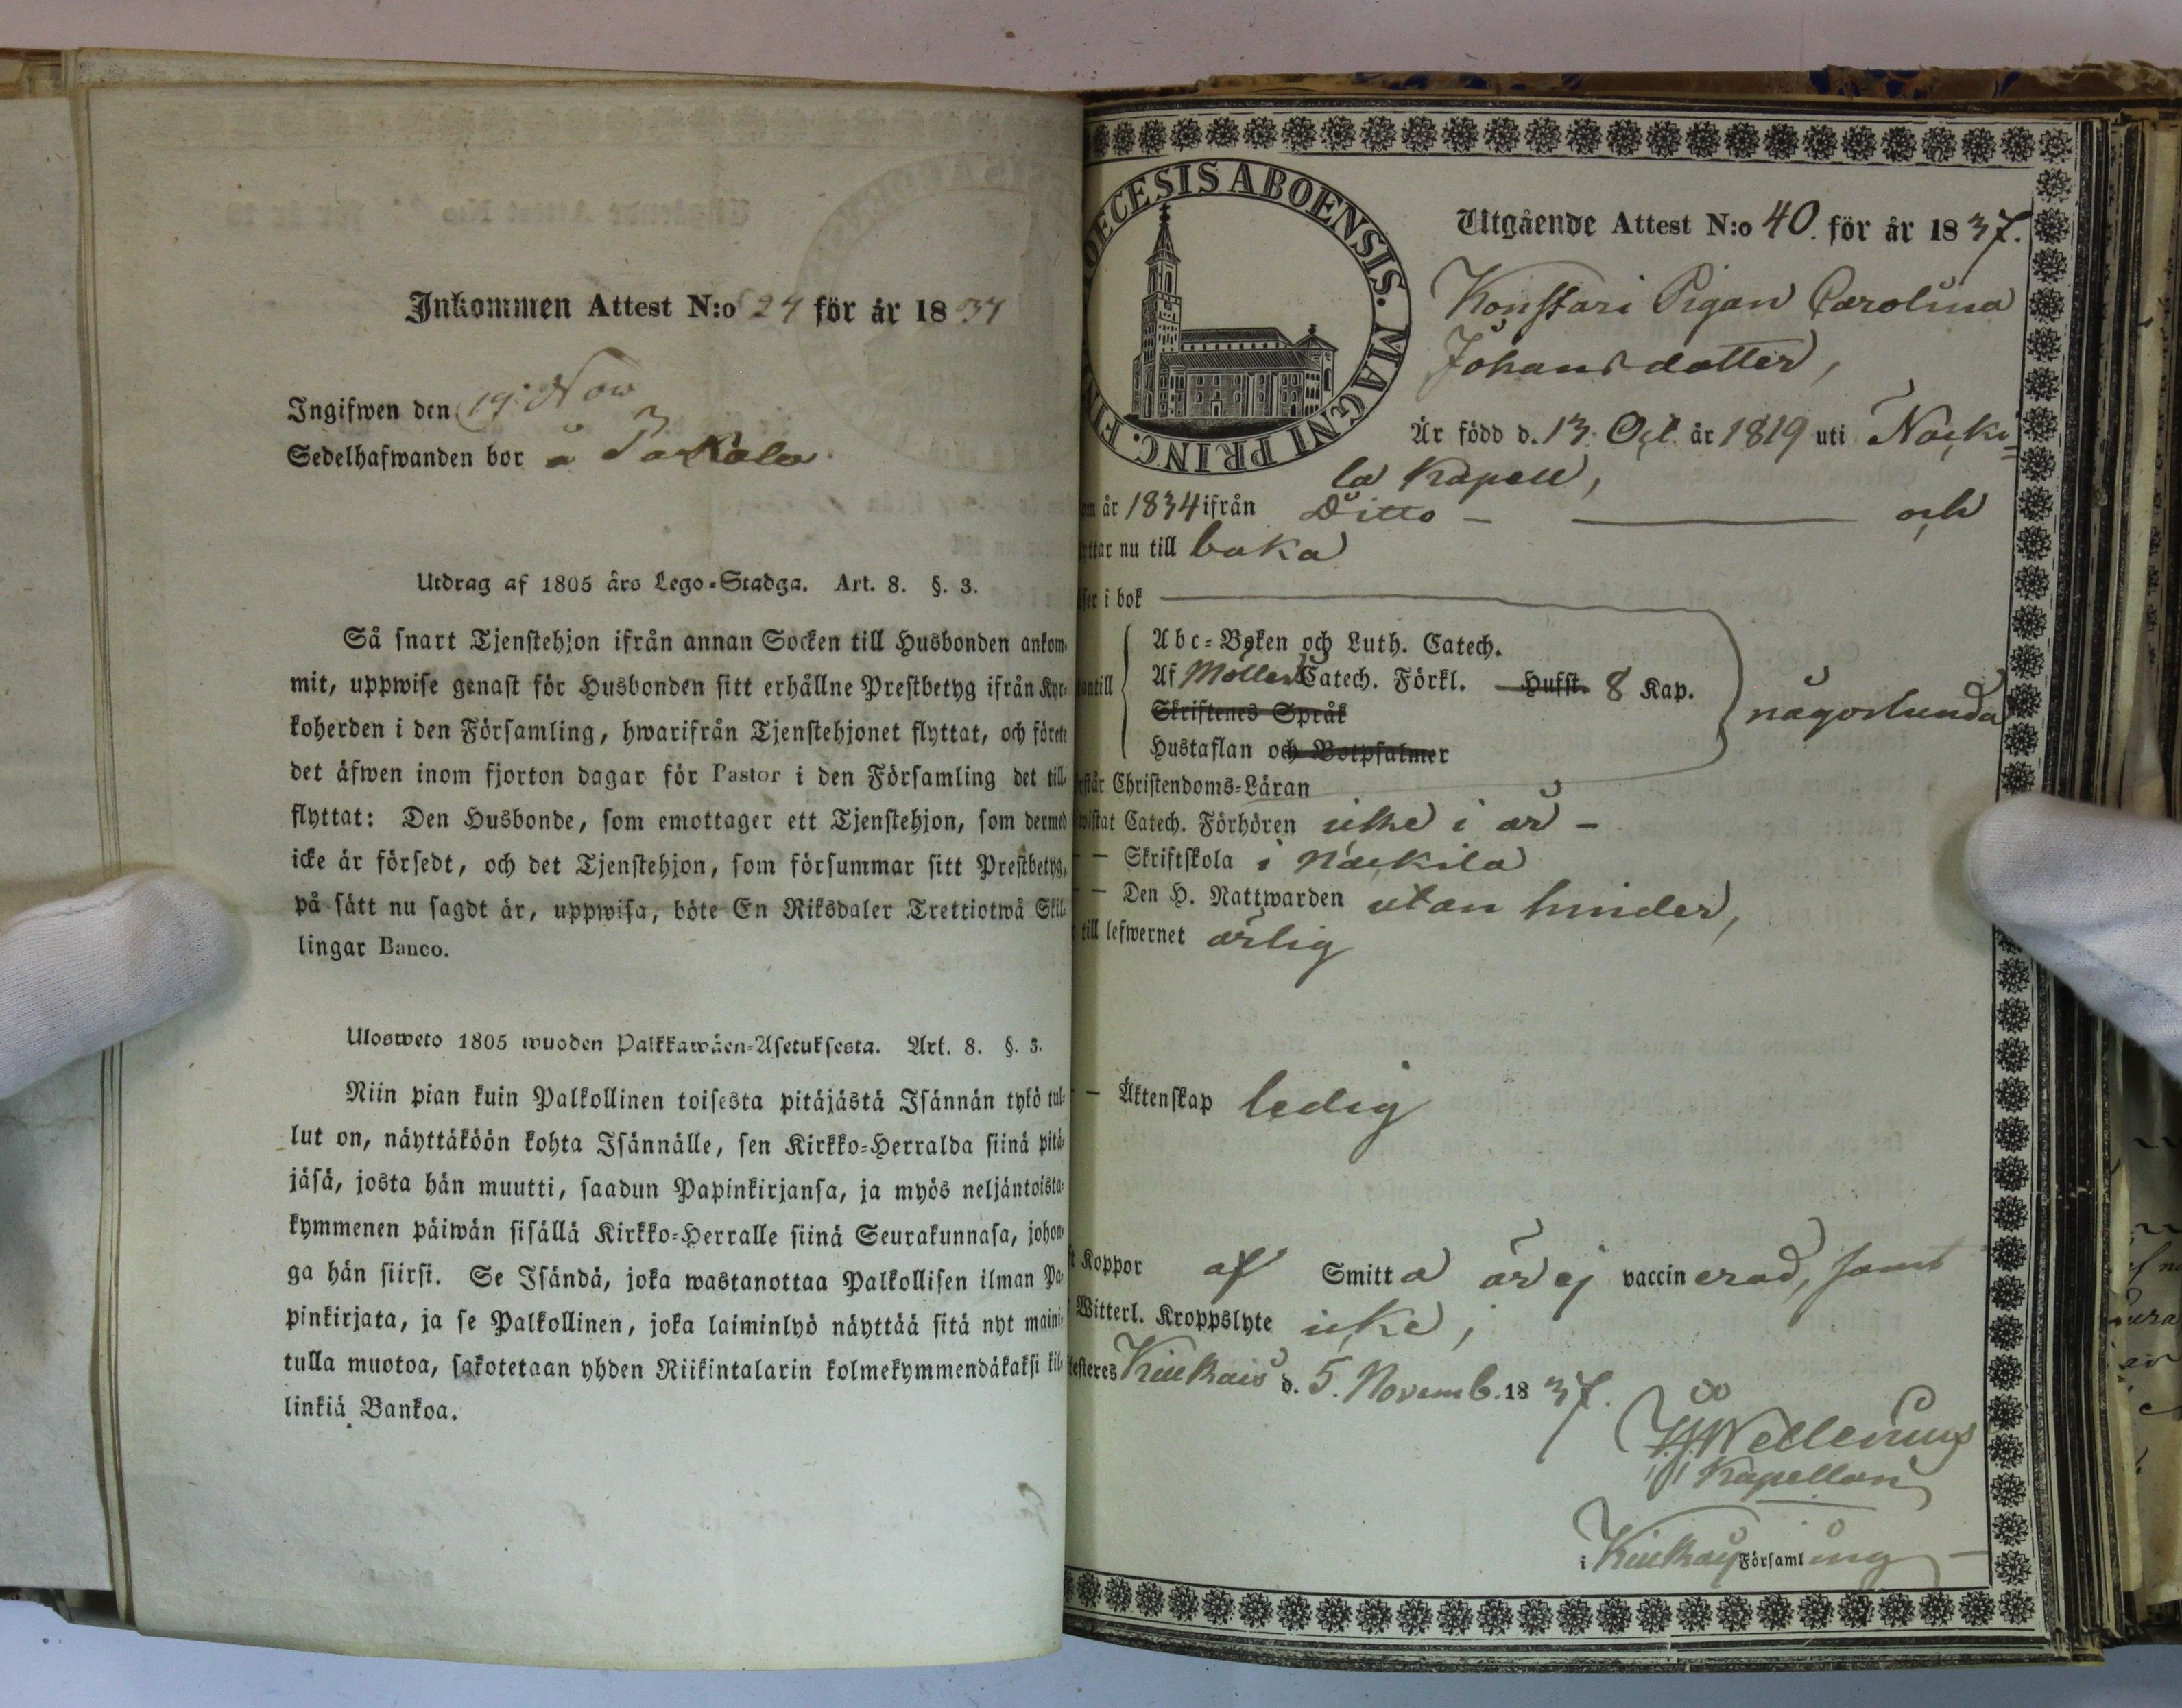 Inkommen Attest N:o 24 för år 1834
Ingifwen den 19 Nov
Sedelhafwanden bor å
Utdrag af 1805 års Lego-Stadga. Art. 8. §. 3.
Så snart Tjenstehjon ifrån annan Socken till Husbonden ankom-
mit, uppwise genast för Husbonden sitt erhållne Prestbetyg ifrån Kyr-
koherden i den Församling, hwarifrån Tjenstehjonet flyttat, och förete
det äfwen inom fjorton dagar för Pastor i den Församling det till-
flyttat: Den Husbonde, som emottager ett Tjenstehjon, som dermed
icke är försedt, och det Tjenstehjon, som försummar sitt Prestbetyg,
på sätt nu sagdt är, uppwisa, böte En Riksdaler Trettiotwå Skil-
lingar Banco.
Ulosweto 1805 wuoden Palkkawäen-Asetuksesta. Art. 8. §. 3.
Niin pian kuin Palkollinen toisesta pitäjästä Isännän tykö tul-
lut on, näyttäköön kohta Isännälle, sen Kirkko-Herralda siinä pitä-
jäsä, josta hän muutti, saadun Papinkirjansa, ja myös neljäntoista-
kymmenen päiwän sisällä Kirkko-Herralle siinä Seurakunnasa, johon-
ga hän siirsi. Se Isändä, joka wastanottaa Palkollisen ilman Pa-
pinkirjata, ja se Palkollinen, joka laiminlyö näyttää sitä nyt maini-
tulla muotoa, sakotetaan yhden Riikintalarin kolmekymmendäkaksi kil-
linkiä Bankoa.
DECESIS ABOENSIS. MAGNI PRINC. FIN
Utgående Attest N:o 40. för år 1837.
Konstari Pigan Carolina
Johansdotter,
Är född d. 13. Oct. år 1819 uti Nacki=
la Kapell,
år 1834 ifrån Ditto — och
ttar nu till baka
ser i bok
Abc-Boken och Luth. Catech.
antill Af Möllers Catech. Förkl. Hufst. 8 Kap.
Skriftenes Språk
Hustaflan och Botpsalmer
någorlunda
står Christendoms-Läran
wistat Catech. Förhören icke i år —
— Skriftskola i Nackila
— Den H. Nattwarden utan hinder,
till lefwernet ärlig
— Äktenskap ledig
t Koppor af Smitta är ej vaccinerad, samt
Witterl. Kroppslyte icke,
testeres Kiukais d. 5. Novemb. 1837.
Wellenius
Kapellan
i Kiukais Församling